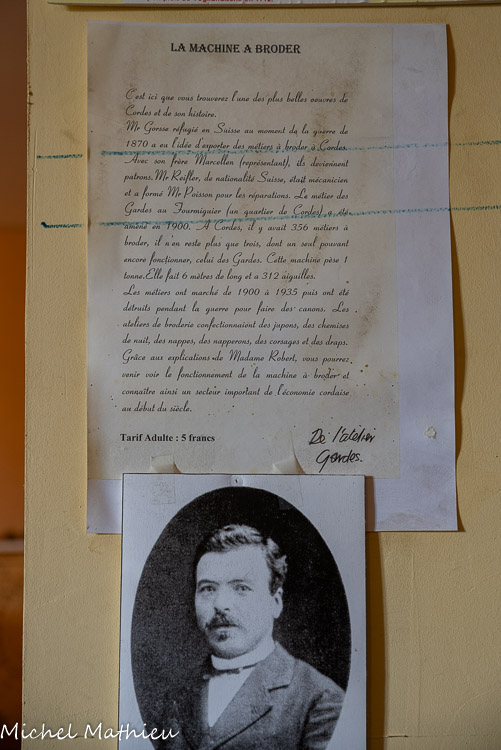 LA MACHINE A BRODER
C'est ici que vous trouverez l'une des plus belles oeuvres de
Cordes et de son histoire.
Mr Gorsse réfugié en Suisse au moment de la guerre de
1870 a eu l'idée d'exporter des métiers à broder à Cordes.
Avec son frère Marcellen (représentant), ils deviennent
patrons. Mr Reifler, de nationalité Suisse, était mécanicien
et a formé Mr Poisson pour les réparations. Le métier des
Gardes au Fourmiguier (un quartier de Cordes) a été
amené en 1900. A Cordes, il y avait 356 métiers à
broder, il n'en reste plus que trois, dont un seul pouvant
encore fonctionner, celui des Gardes. Cette machine pèse 1
tonne.Elle fait 6 mètres de long et a 312 aiguilles.
Les métiers ont marché de 1900 à 1935 puis ont été
détruits pendant la guerre pour faire des canons. Les
ateliers de broderie confectionnaient des jupons, des chemises
de nuit, des nappes, des napperons, des corsages et des draps.
Grâce aux explications de Madame Robert, vous pourrez
venir voir le fonctionnement de la machine à broder et
connaître ainsi un secteur important de l'économie cordaise
au début du siècle.
Tarif Adulte : 5 francs
De l'atelier
Gardes.
Michel Mathieu